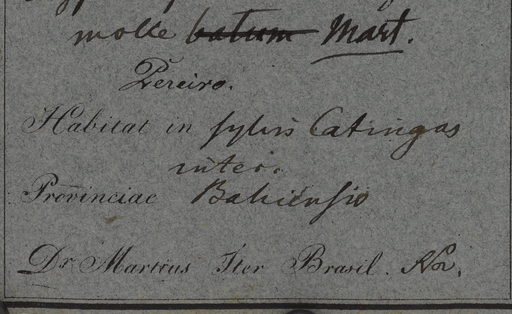 molle batum Mart.
Pereiro.
Habitat in sylvis Catingas
inter.
Provinciae Bahiensis
Dr. Martius Iter Brasil. No.